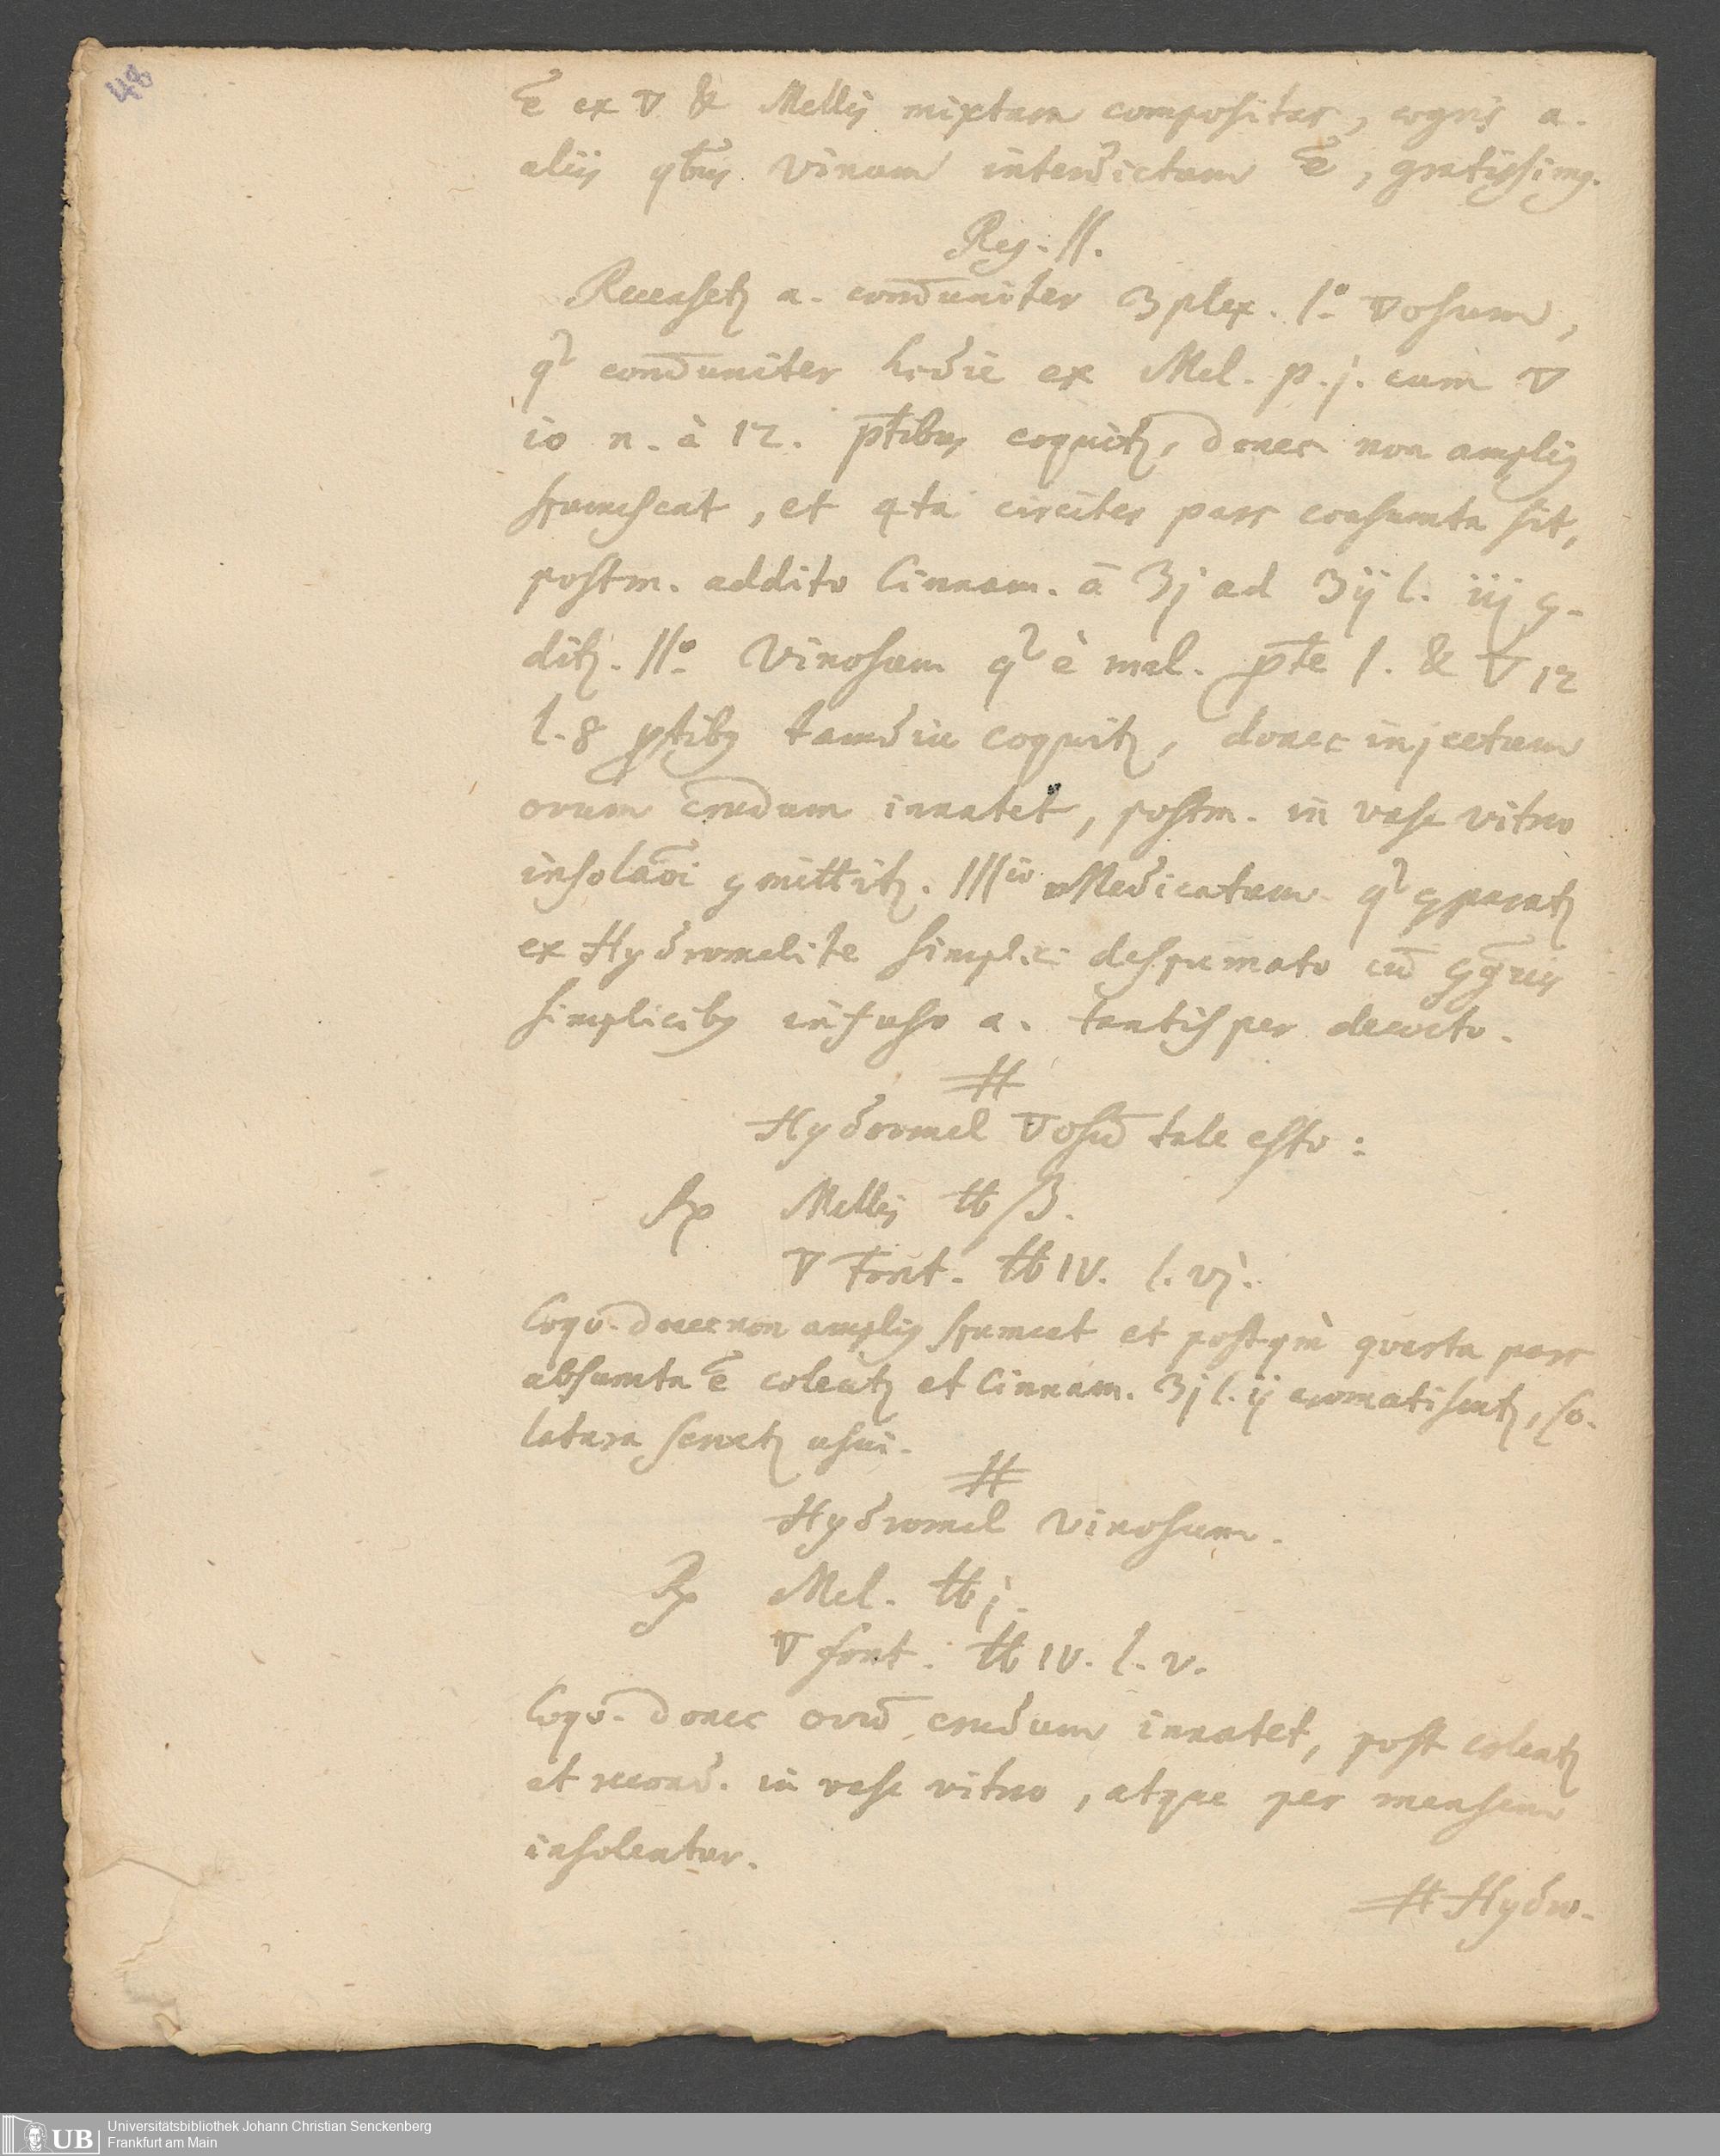 48
ē ex 🜄 & Mellis mixtura compositus, ægris a.
aliis qbus vinum interdictum ē, gratissimus.
Reg. II.
Recensetur a. communiter 3plex. I.º 🜄osum,
qd communiter hodie ex Mel. p. j. cum 🜄
io n. à 12. ptibus coquitur, donec non amplius
spumescat, et 4ta circiter pars consumta sit,
postm. addito Cinnam. a ʒj ad ʒij l. iij con-
ditur. II.º Vinosum qd è mel. pte 1. & 🜄 12
l. 8 ptibus tamdiu coquitur, donec injectum
ovum crudum innatet, postm. in vase vitreo
insolaōi committitur. IIIio Medicatum qd comparatur
ex Hydromelite simplici despumato cum congruis
simplicibus infuso a. tantisper decocto.
#
Hydromel 🜄osum tale esto:
℞ Mellis ℔ ß.
🜄 Font. ℔ IV. l. vj.
Coqu. donec non amplius spumeat et postquam quarta pars
absumta ē coleatur et Cinnam. ʒj l. ij aromatisetur, Co-
latura servetur usui.
#
Hydromel vinosum.
℞ Mel. ℔ j.
🜄 font. ℔ IV. l. v.
Coqu. donec ovum crudum innatet, post coleatur
et recond. in vase vitreo, atque per mensem
insoleatur.
# Hydro-
Universitätsbibliothek Johann Christian Senckenberg
Frankfurt am Main
UB